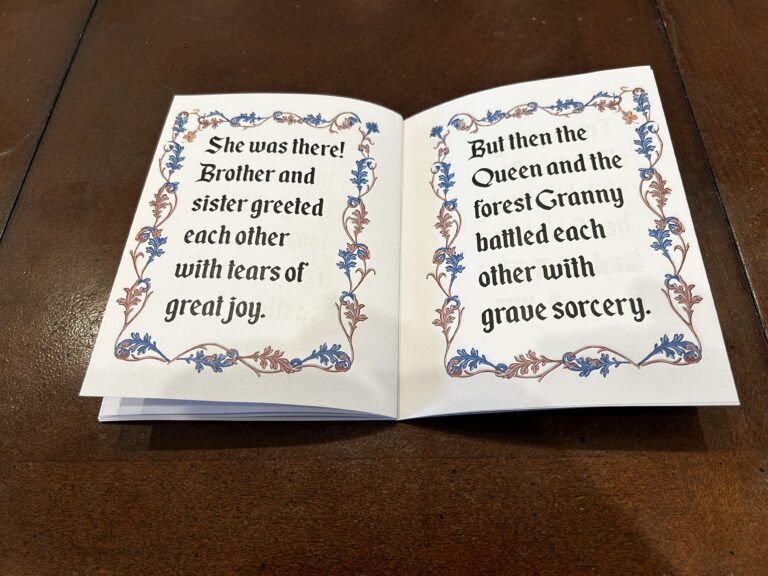 She was there!
Brother and
sister greeted
each other
with tears of
great joy.
But then the
Queen and the
forest Granny
battled each
other with
grave sorcery.